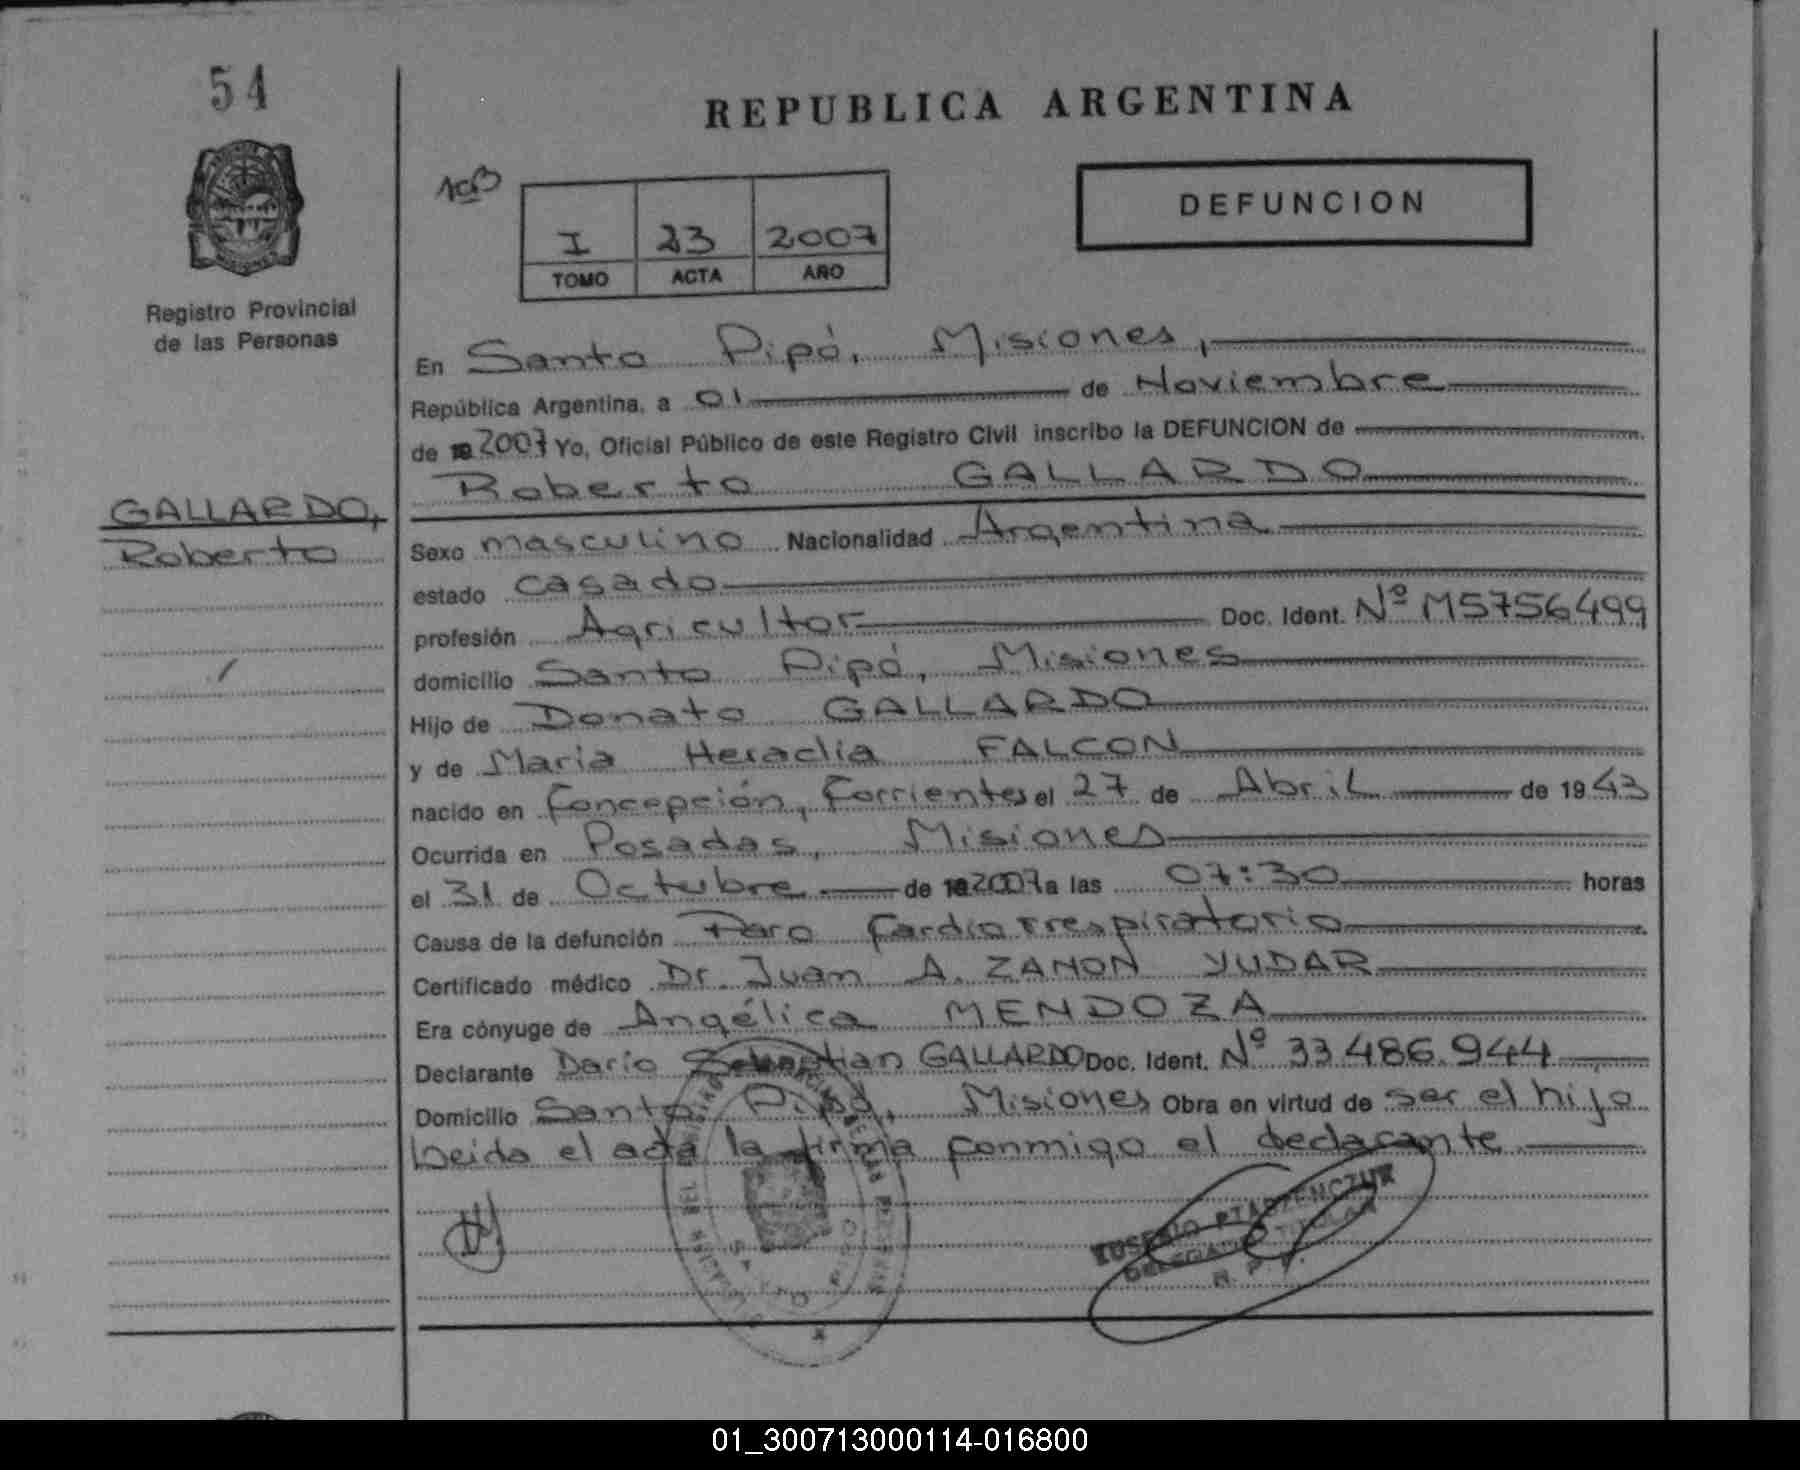 54
REPUBLICA ARGENTINA
I 23 2007
TOMO ACTA AÑO
DEFUNCION
Registro Provincial
de las Personas
En Santo Pipó, Misiones,
República Argentina, a 01 de Noviembre
de 19 2007 Yo, Oficial Público de este Registro Civil inscribo la DEFUNCION de
Roberto GALLARDO
GALLARDO,
Roberto
Sexo masculino Nacionalidad Argentina
estado casado
profesión Agricultor Doc. Ident. Nº M5756499
domicilio Santo Pipó, Misiones
Hijo de Donato GALLARDO
y de Maria Heraclia FALCON
nacido en Concepción, Corrientes el 27 de Abril de 1943
Ocurrida en Posadas, Misiones
el 31 de Octubre de 19 2007 a las 07:30 horas
Causa de la defunción Paro Cardiorrespiratorio
Certificado médico Dr. Juan A. ZANON YUDAR
Era cónyuge de Angélica MENDOZA
Declarante Dario Sebastian GALLARDO Doc. Ident. Nº 33.486.944
Domicilio Santo Pipó, Misiones Obra en virtud de ser el hijo
Leida el acta la firma conmigo el declarante
DELEGADO TITULAR
R. P. P.
01_300713000114-016800